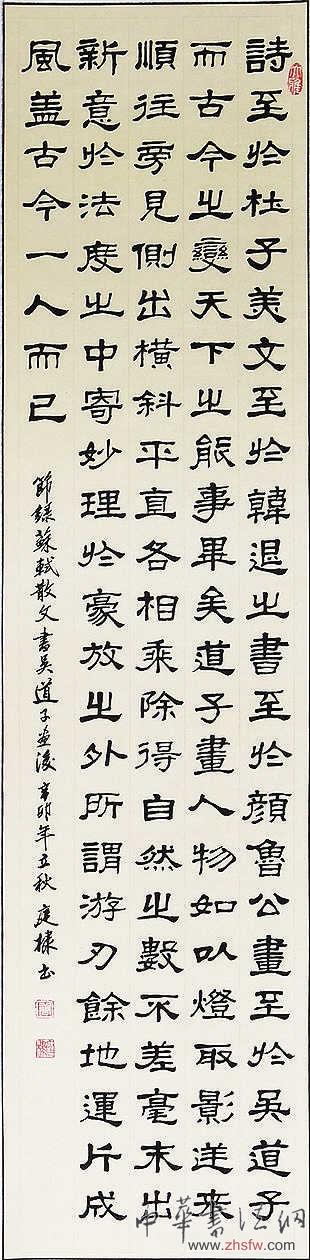 詩至於杜子美文至於韓退之書至於顏魯公畫至於吳道子
而古今之變天下之能事畢矣道子畫人物如以燈取影逆來
順往旁見側出橫斜平直各相乘除得自然之數不差毫末出
新意於法度之中寄妙理於豪放之外所謂游刃餘地運斤成
風盖古今一人而已
節錄蘇軾散文書吳道子畫後辛卯年立秋庭棣書
中華書法網
www.zhsfw.com